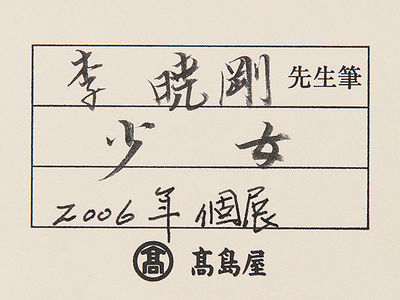 李 暁剛 先生筆
少女
2006年 個展
髙 髙島屋